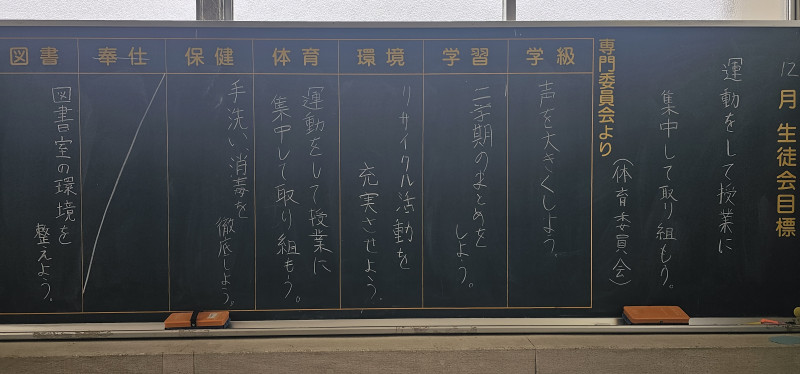 12月 生徒会目標
運動をして授業に
集中して取り組もう。
(体育委員会)
専門委員会より
学級
声を大きくしよう。
学習
二学期のまとめを
しよう。
環境
リサイクル活動を
充実させよう。
体育
運動をして授業に
集中して取り組もう。
保健
手洗い、消毒を
徹底しよう。
奉仕
図書
図書室の環境を
整えよう。